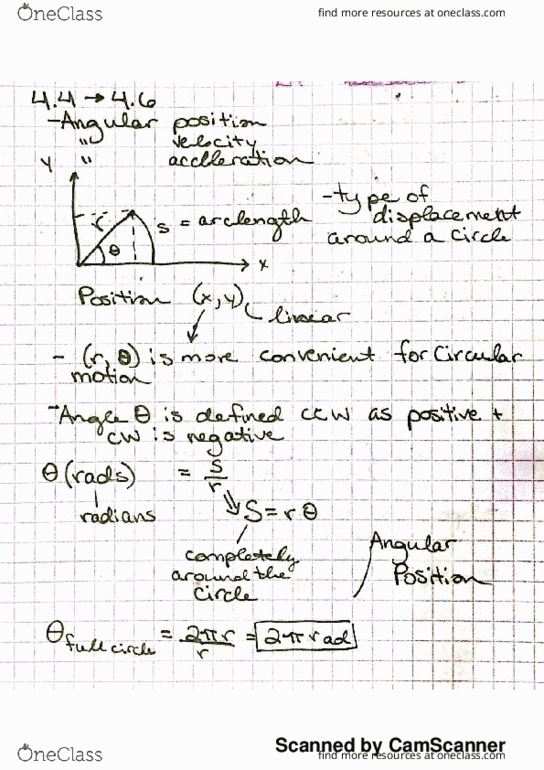 OneClass
find more resources at oneclass.com
4.4 → 4.6
- Angular position
" velocity
" accleration
y
r
θ
s = arclength
x
- type of
displacement
around a circle
Position (x,y)
linear
- (r, θ) is more convenient for Circular
motion
- Angle θ is defined CCW as positive +
CW is negative
θ (rads) = s/r
radians
S = r θ
completely
around the
circle
Angular
Position
θ full circle = 2πr/r = 2π rad
Scanned by CamScanner
OneClass
find more resources at oneclass.com